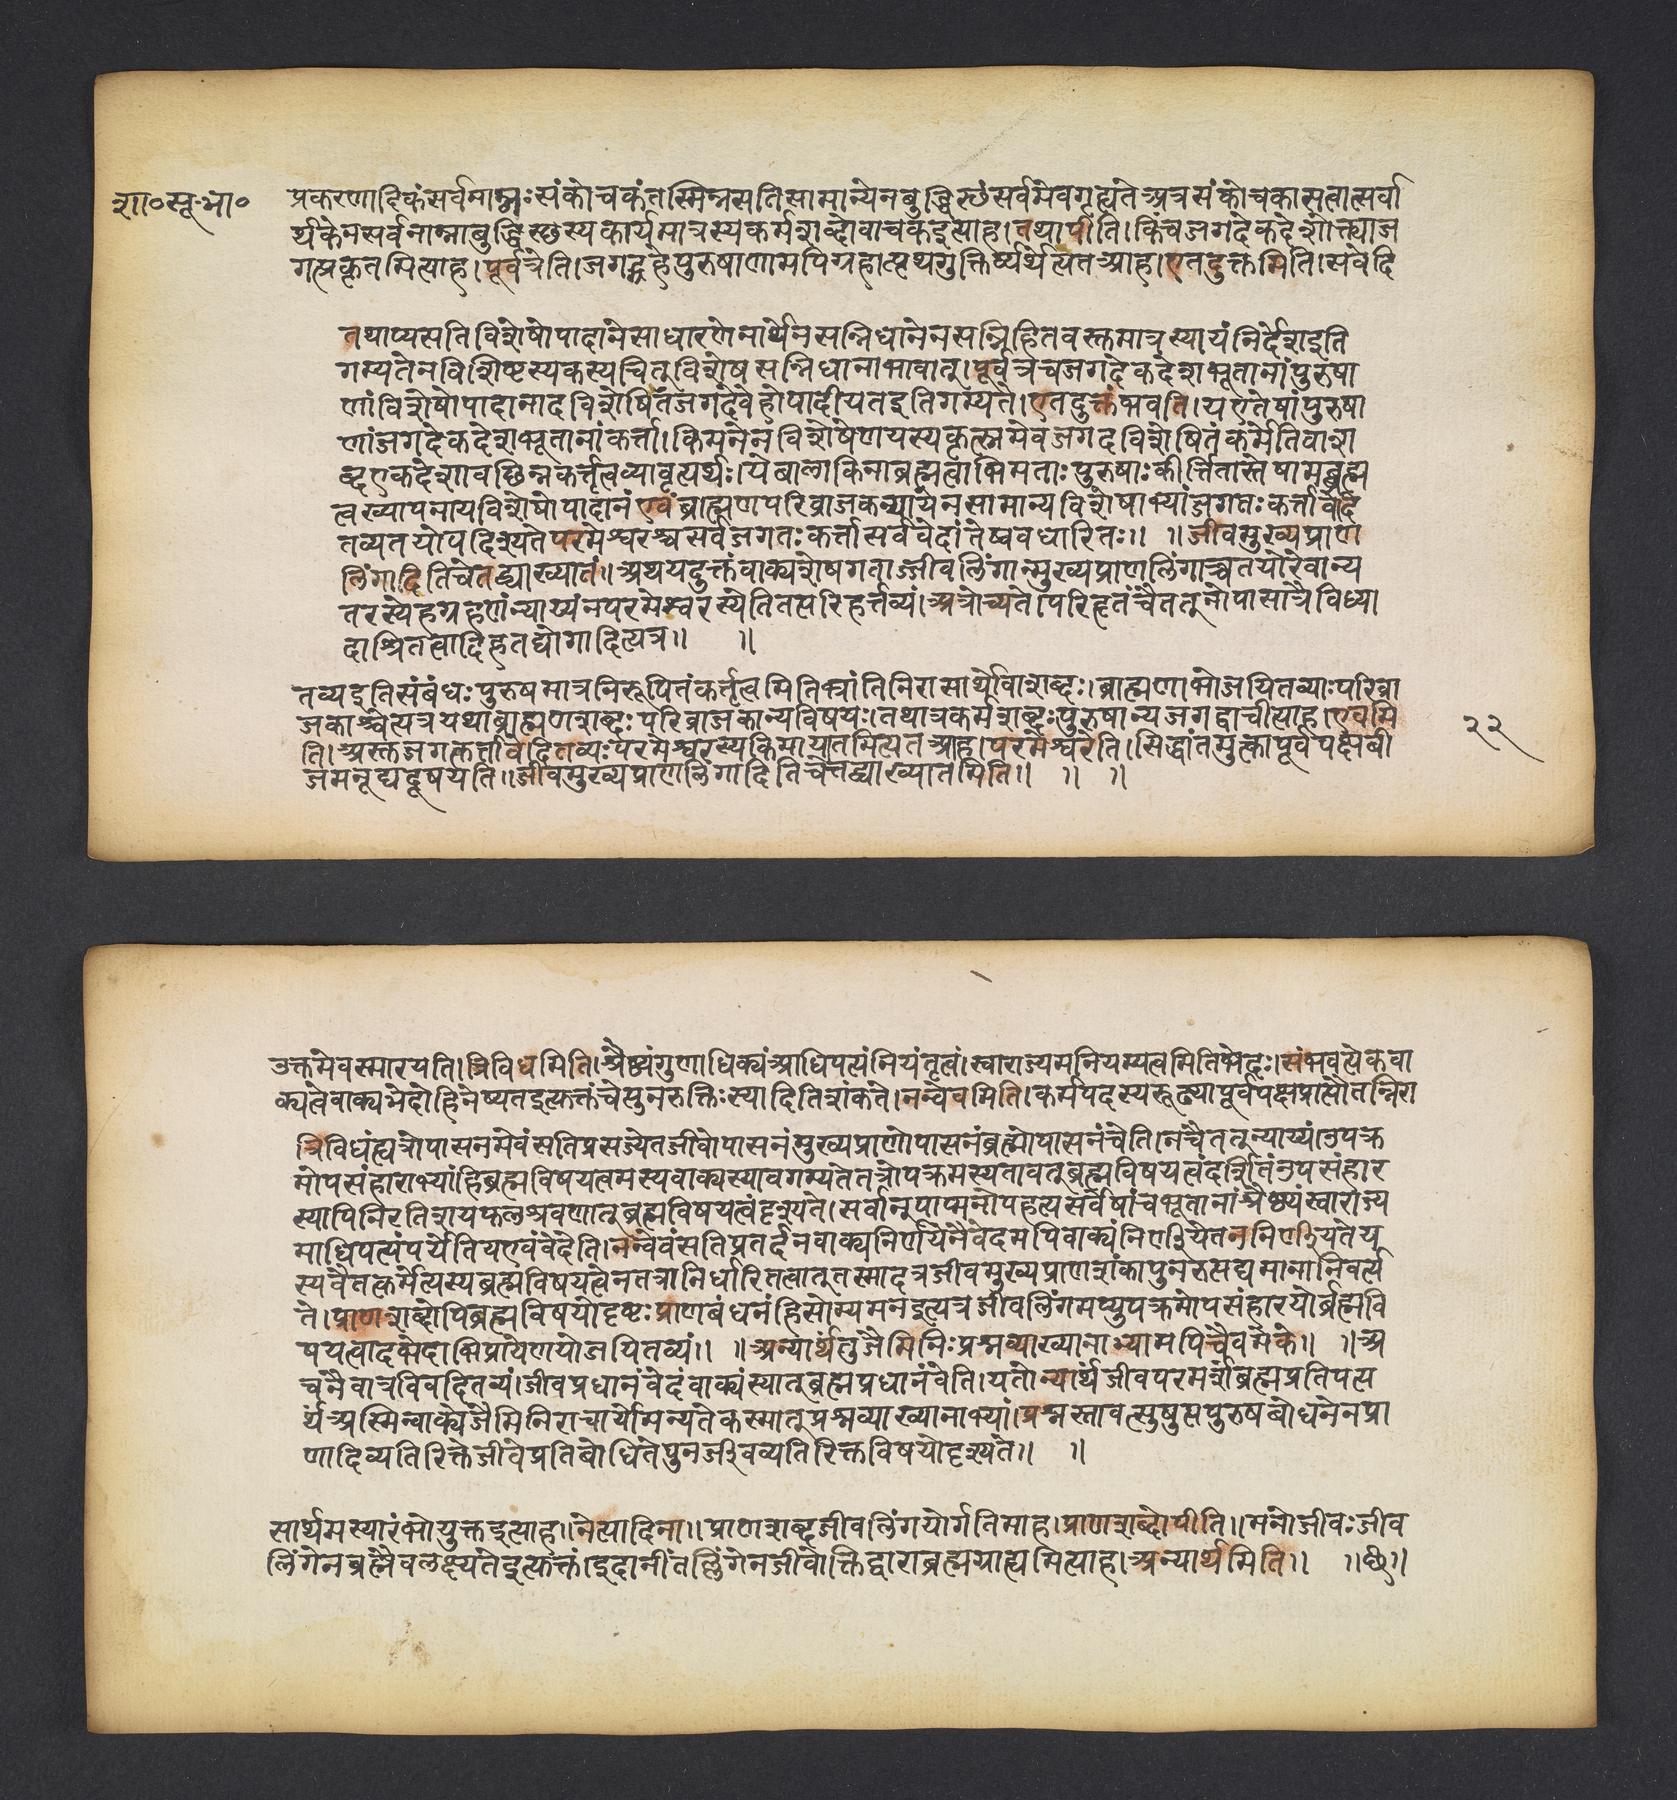 शा॰सू॰भा॰
प्रकरणादिकंसर्वनाम्नःसंकोचकंतस्मिन्नसतिसामान्येनबुद्धिस्थंसर्वमेवगृह्यतेअत्रसंकोचकासत्वात्सर्वा
र्थकेनसर्वनाम्नाबुद्धिस्थस्यकार्यमात्रस्यकर्मशब्दोवाचकइत्याह।तथापीति।किंचजगदेकदेशोक्त्याज
गत्प्रकृतमित्याह।पूर्वत्रेति।जगद्ग्रहेपुरुषाणामपिग्रहात्पृथगुक्तिर्व्यर्थेत्यतआह।एतदुक्तमिति।सवेदि
तथाप्यसतिविशेषोपादानेसाधारणेनार्थेनसन्निधानेनसन्निहितवस्तमात्रस्यायंनिर्देशइति
गम्यतेनविशिष्टस्यकस्यचित्विशेषसन्निधानाभावात्।पूर्वत्रचजगदेकदेशभूतानांपुरुषा
णांविशेषोपादानादविशेषितंजगदेवेहोपादीयतइतिगम्यते।एतदुक्तंभवति।यएतेषांपुरुषा
णांजगदेकदेशभूतानांकर्त्ता।किमनेनविशेषेणयस्यकृत्स्नमेवजगदविशेषितंकर्मेतिवाश
ब्दएकदेशावछिन्नकर्त्तृत्वव्यावृत्यर्थः।येबालाकिनाब्रह्मत्वाभिमताःपुरुषाःकीर्त्तितास्तेषामब्रह्म
त्वख्यापनायविशेषोपादानंएवंब्राह्मणपरिव्राजकन्यायेनसामान्यविशेषाभ्यांजगतःकर्त्तावेदि
तव्यतयोपदिश्यतेपरमेश्वरश्चसर्वजगतःकर्त्तासर्ववेदांतेष्ववधारितः॥ ॥जीवमुख्यप्राण
लिंगादितिचेतद्व्याख्यातं॥अथयदुक्तंवाक्यशेषगताज्जीवलिंगान्मुख्यप्राणलिंगाच्चतयोरेवान्य
तरस्येहग्रहणंन्याय्यंनपरमेश्वरस्येतितत्परिहर्त्तव्यं।अत्रोच्यते।परिहृतंचैतत्नोपासात्रैविध्या
दाश्रितत्वादिहतद्योगादित्यत्र॥ ॥
तव्यइतिसंबंधःपुरुषमात्रनिरूपितंकर्त्तृत्वमितिभ्रांतिनिरासार्थोवाशब्दः।ब्राह्मणाभोजयितव्याःपरिव्रा
जकाश्चेत्यत्रयथाब्राह्मणशब्दःपरिव्राजकान्यविषयःतथात्रकर्मशब्दःपुरुषान्यजगद्वाचीत्याह।एवमि
ति।अस्तजगत्कर्तावेदितव्यःपरमेश्वरस्यकिमायातमित्यतआह।परमेश्वरेति।सिद्धांतमुत्कापूर्वपक्षबी
जमनूद्यदूषयति॥जीवमुख्यप्राणलिंगादितिचेत्तद्व्याख्यातमिति॥ ॥ ॥
२२
उक्तमेवस्मारयति।त्रिविधमिति।श्रैष्ठ्यंगुणाधिक्यंआधिपत्यंनियंतृत्वं।स्वाराज्यमनियम्यत्वमितिभेदः।संभवत्येकवा
क्यत्वेवाक्यभेदोहिनेष्यतइत्युक्तंचेत्पुनरुक्तिःस्यादितिशंकते।नन्वेवमिति।कर्मपदस्यरूढ्यापूर्वपक्षप्राप्तौतन्निरा
त्रिविधंह्यत्रोपासनमेवंसतिप्रसज्येतजीवोपासनंमुख्यप्राणोपासनंब्रह्मोपासनंचेति।नचैतत्न्याय्यं।उपक्र
मोपसंहाराभ्यांहिब्रह्मविषयत्वमस्यवाक्यस्यावगम्यतेतत्रोपक्रमस्यतावत्ब्रह्मविषयत्वंदर्शितंउपसंहार
स्यापिनिरतिशयफलश्रवणात्ब्रह्मविषयत्वंदृश्यते।सर्वान्पाप्मनोपहत्यसर्वेषांचभूतानांश्रैष्ठ्यंस्वाराज्य
माधिपत्यंपर्येतियएवंवेदेति।नन्वेवंसतिप्रतर्दनवाक्यनिर्णयेनैवेदमपिवाक्यंनिर्णीयेतननिर्णीयतेय
स्यवैतत्कर्मेत्यस्यब्रह्मविषयत्वेनतत्रानिर्धारितत्वात्तस्मादत्रजीवमुख्यप्राणशंकापुनरुत्पद्यमानानिवर्त्य
ते।प्राणशब्दोपिब्रह्मविषयोदृष्टःप्राणबंधनंहिसोम्यमनइत्यत्रजीवलिंगमप्युपक्रमोपसंहारयोर्ब्रह्मवि
षयत्वादभेदाभिप्रायेणयोजयितव्यं॥ ॥अन्यार्थंतुजैमिनिःप्रश्नव्याख्यानाभ्यामपिचैवमेके॥ ॥अ
चनैवात्रविवदितव्यं।जीवप्रधानंवेदंवाक्यंस्यात्ब्रह्मप्रधानंवेति।यतोन्यार्थंजीवपरमर्शंब्रह्मप्रतिपत्य
र्थंअस्मिन्वाक्येजैमिनिराचार्योमन्यतेकस्मात्प्रश्नव्याख्यानाभ्यां।प्रश्नस्तावत्सुषुप्तपुरुषबोधनेनप्रा
णादिव्यतिरिक्तेजीवेप्रतिबोधितेपुनर्जीवव्यतिरिक्तविषयोदृश्यते॥ ॥
सार्थमस्यारंभोयुक्तइत्याह॥नेत्यादिना॥प्राणशब्दजीवलिंगयोर्गतिमाह।प्राणशब्दोपीति॥मनोजीवःजीव
लिंगेनब्रह्मैवलक्ष्यतेइत्युक्तं।इदानींतल्लिंगेनजीवोक्तिद्वाराब्रह्मग्राह्यमित्याह।अन्यार्थमिति॥ ॥छ॥